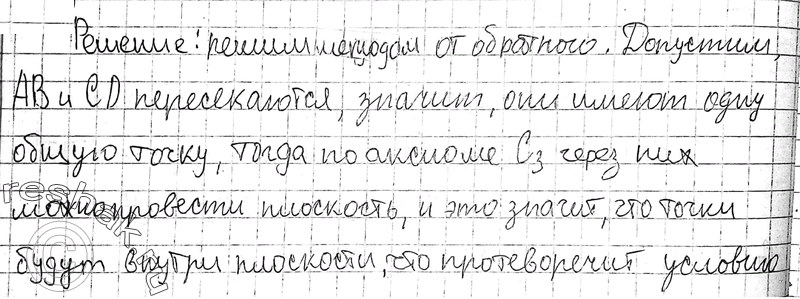 Решение: решим методом от обратного. Допустим,
AB и CD пересекаются, значит, они имеют одну
общую точку, тогда по аксиоме C₃ через них
можно провести плоскость, и это значит, что точки
будут внутри плоскости, что протеворечит условию.
reshak.ru